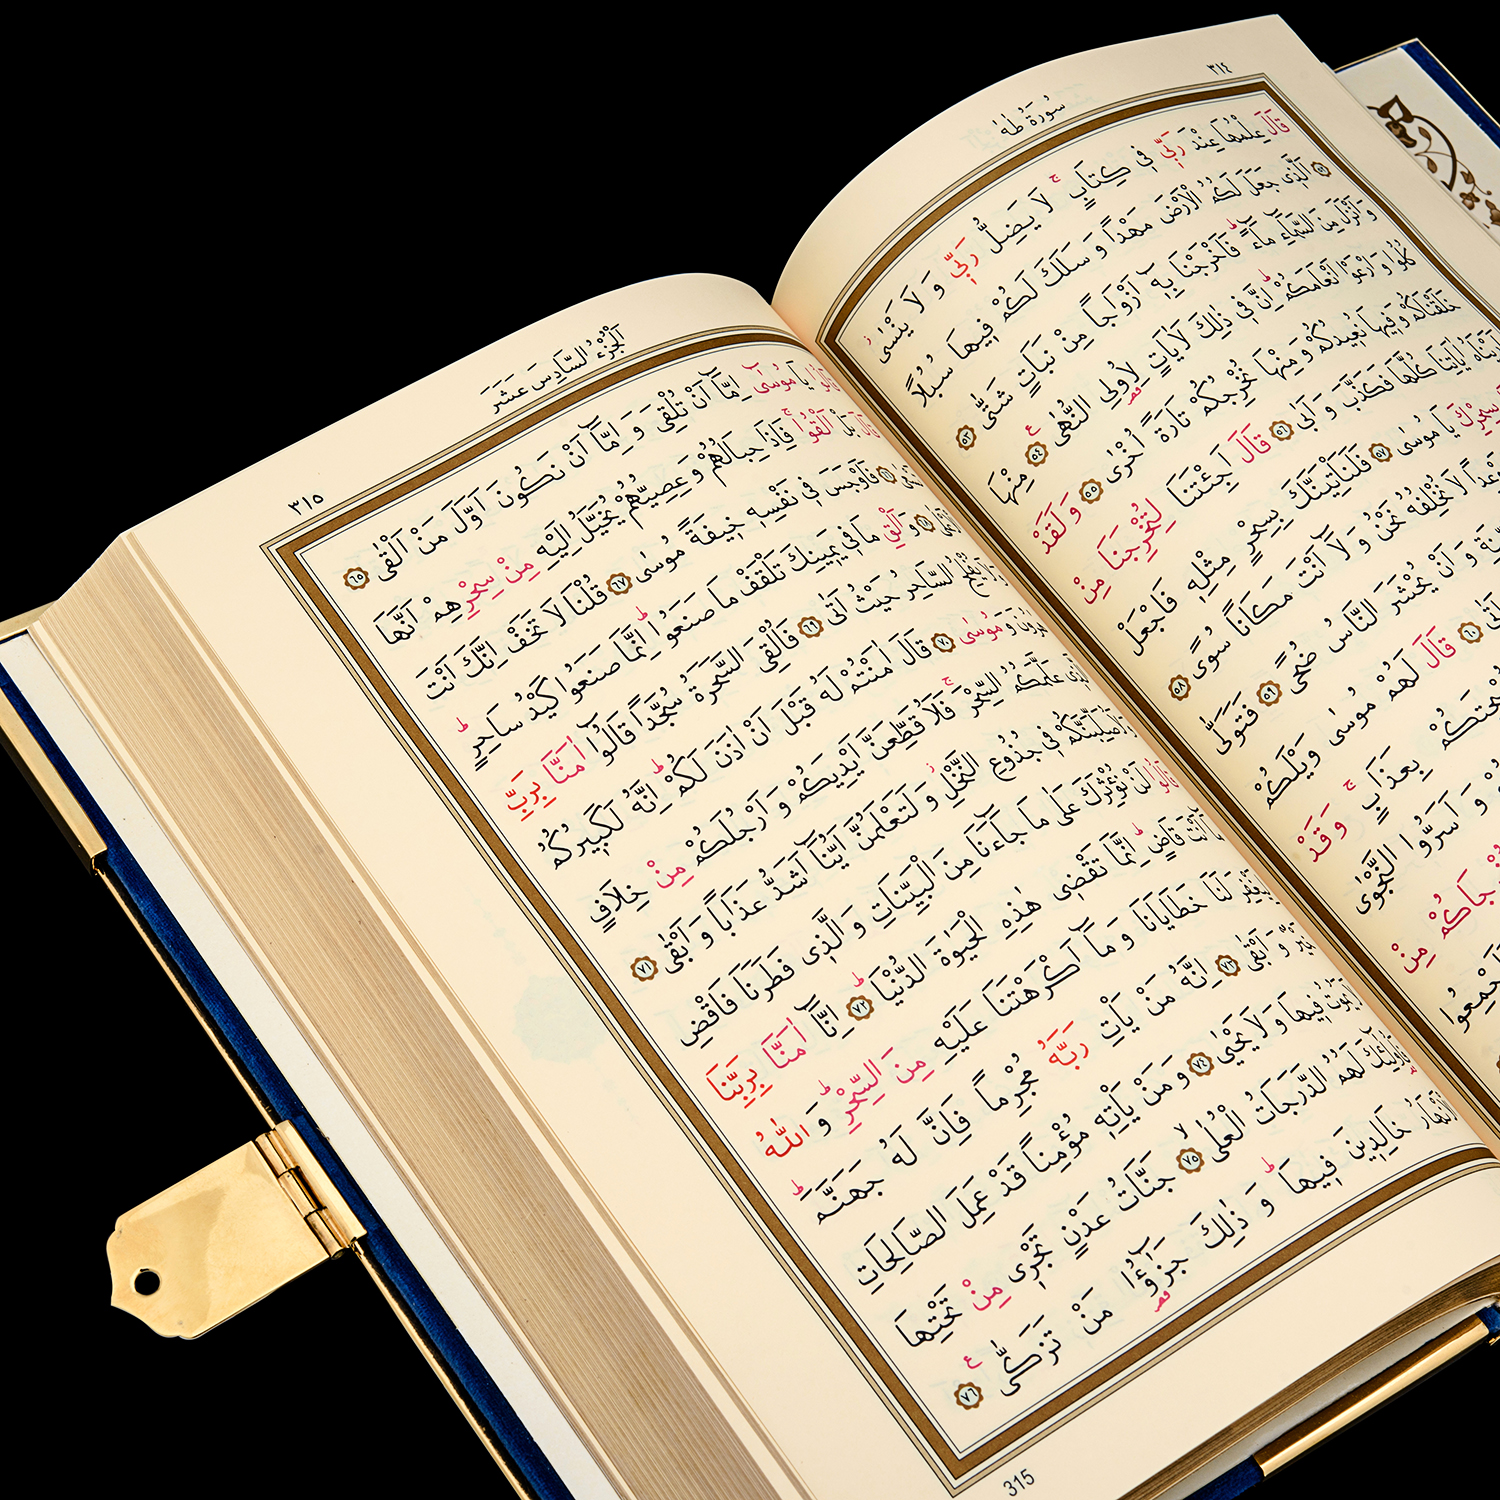 ٣١٤
سُورَةُ طٰهٰ
قَالَ عِلْمُهَا عِنْدَ رَبّ۪ى ف۪ى كِتَابٍۚ لَا يَضِلُّ رَبّ۪ى وَ لَا يَنْسٰىۘ
﴿٥٢﴾ اَلَّذ۪ى جَعَلَ لَكُمُ الْاَرْضَ مَهْدًا وَ سَلَكَ لَكُمْ ف۪يهَا سُبُلًا
وَ اَنْزَلَ مِنَ السَّمَٓاءِ مَٓاءًۜ فَاَخْرَجْنَا بِه۪ٓ اَزْوَاجًا مِنْ نَبَاتٍ شَتّٰى ﴿٥٣﴾
كُلُوا وَ ارْعَوْا اَنْعَامَكُمْۜ اِنَّ ف۪ى ذٰلِكَ لَاٰيَاتٍ لِاُو۬لِى النُّهٰى ﴿٥٤﴾ مِنْهَا
خَلَقْنَاكُمْ وَ ف۪يهَا نُع۪يدُكُمْ وَ مِنْهَا نُخْرِجُكُمْ تَارَةً اُخْرٰى ﴿٥٥﴾ وَ لَقَدْ
اٰيَاتِنَا كُلَّهَا فَكَذَّبَ وَ اَبٰى ﴿٥٦﴾ قَالَ اَجِئْتَنَا لِتُخْرِجَنَا مِنْ
بِسِحْرِكَ يَا مُوسٰى ﴿٥٧﴾ فَلَنَاْتِيَنَّكَ بِسِحْرٍ مِثْلِه۪ فَاجْعَلْ
لَا نُخْلِفُهُ نَحْنُ وَ لَٓا اَنْتَ مَكَانًا سُوًى ﴿٥٨﴾
وَ اَنْ يُحْشَرَ النَّاسُ ضُحًى ﴿٥٩﴾ فَتَوَلّٰى
اَتٰى ﴿٦٠﴾ قَالَ لَهُمْ مُوسٰى وَيْلَكُمْ
بِعَذَابٍۚ وَ قَدْ
وَ اَسَرُّوا النَّجْوٰى
مِنْ
٣١٥
اَلْجُزْءُ السَّادِسَ عَشَرَ
يَا مُوسٰٓى اِمَّٓا اَنْ تُلْقِىَ وَ اِمَّٓا اَنْ نَكُونَ اَوَّلَ مَنْ اَلْقٰى ﴿٦٥﴾
قَالَ بَلْ اَلْقُواۚ فَاِذَا حِبَالُهُمْ وَ عِصِيُّهُمْ يُخَيَّلُ اِلَيْهِ مِنْ سِحْرِهِمْ اَنَّهَا
﴿٦٦﴾ فَاَوْجَسَ ف۪ى نَفْسِه۪ خ۪يفَةً مُوسٰى ﴿٦٧﴾ قُلْنَا لَا تَخَفْ اِنَّكَ اَنْتَ
﴿٦٨﴾ وَ اَلْقِ مَا ف۪ى يَم۪ينِكَ تَلْقَفْ مَا صَنَعُواۜ اِنَّمَا صَنَعُوا كَيْدُ سَاحِرٍۜ
يُفْلِحُ السَّاحِرُ حَيْثُ اَتٰى ﴿٦٩﴾ فَاُلْقِىَ السَّحَرَةُ سُجَّدًا قَالُٓوا اٰمَنَّا بِرَبِّ
وَ مُوسٰى ﴿٧٠﴾ قَالَ اٰمَنْتُمْ لَهُ قَبْلَ اَنْ اٰذَنَ لَكُمْۜ اِنَّهُ لَكَب۪يرُكُمُ
عَلَّمَكُمُ السِّحْرَۚ فَلَاُقَطِّعَنَّ اَيْدِيَكُمْ وَ اَرْجُلَكُمْ مِنْ خِلَافٍ
وَ لَاُصَلِّبَنَّكُمْ ف۪ى جُذُوعِ النَّخْلِۘ وَ لَتَعْلَمُنَّ اَيُّنَٓا اَشَدُّ عَذَابًا وَ اَبْقٰى ﴿٧١﴾
قَالُوا لَنْ نُؤْثِرَكَ عَلٰى مَا جَٓاءَنَا مِنَ الْبَيِّنَاتِ وَ الَّذ۪ى فَطَرَنَا فَاقْضِ
اَنْتَ قَاضٍۜ اِنَّمَا تَقْض۪ى هٰذِهِ الْحَيٰوةَ الدُّنْيَاۜ ﴿٧٢﴾ اِنَّٓا اٰمَنَّا بِرَبِّنَا
لِيَغْفِرَ لَنَا خَطَايَانَا وَ مَٓا اَكْرَهْتَنَا عَلَيْهِ مِنَ السِّحْرِۜ وَ اللّٰهُ
خَيْرٌ وَ اَبْقٰى ﴿٧٣﴾ اِنَّهُ مَنْ يَاْتِ رَبَّهُ مُجْرِمًا فَاِنَّ لَهُ جَهَنَّمَۜ
يَمُوتُ ف۪يهَا وَ لَا يَحْيٰى ﴿٧٤﴾ وَ مَنْ يَاْتِه۪ مُؤْمِنًا قَدْ عَمِلَ الصَّالِحَاتِ
فَاُو۬لٰٓئِكَ لَهُمُ الدَّرَجَاتُ الْعُلٰىۙ ﴿٧٥﴾ جَنَّاتُ عَدْنٍ تَجْر۪ى مِنْ تَحْتِهَا
الْاَنْهَارُ خَالِد۪ينَ ف۪يهَاۜ وَ ذٰلِكَ جَزٰٓؤُا مَنْ تَزَكّٰى ﴿٧٦﴾
315